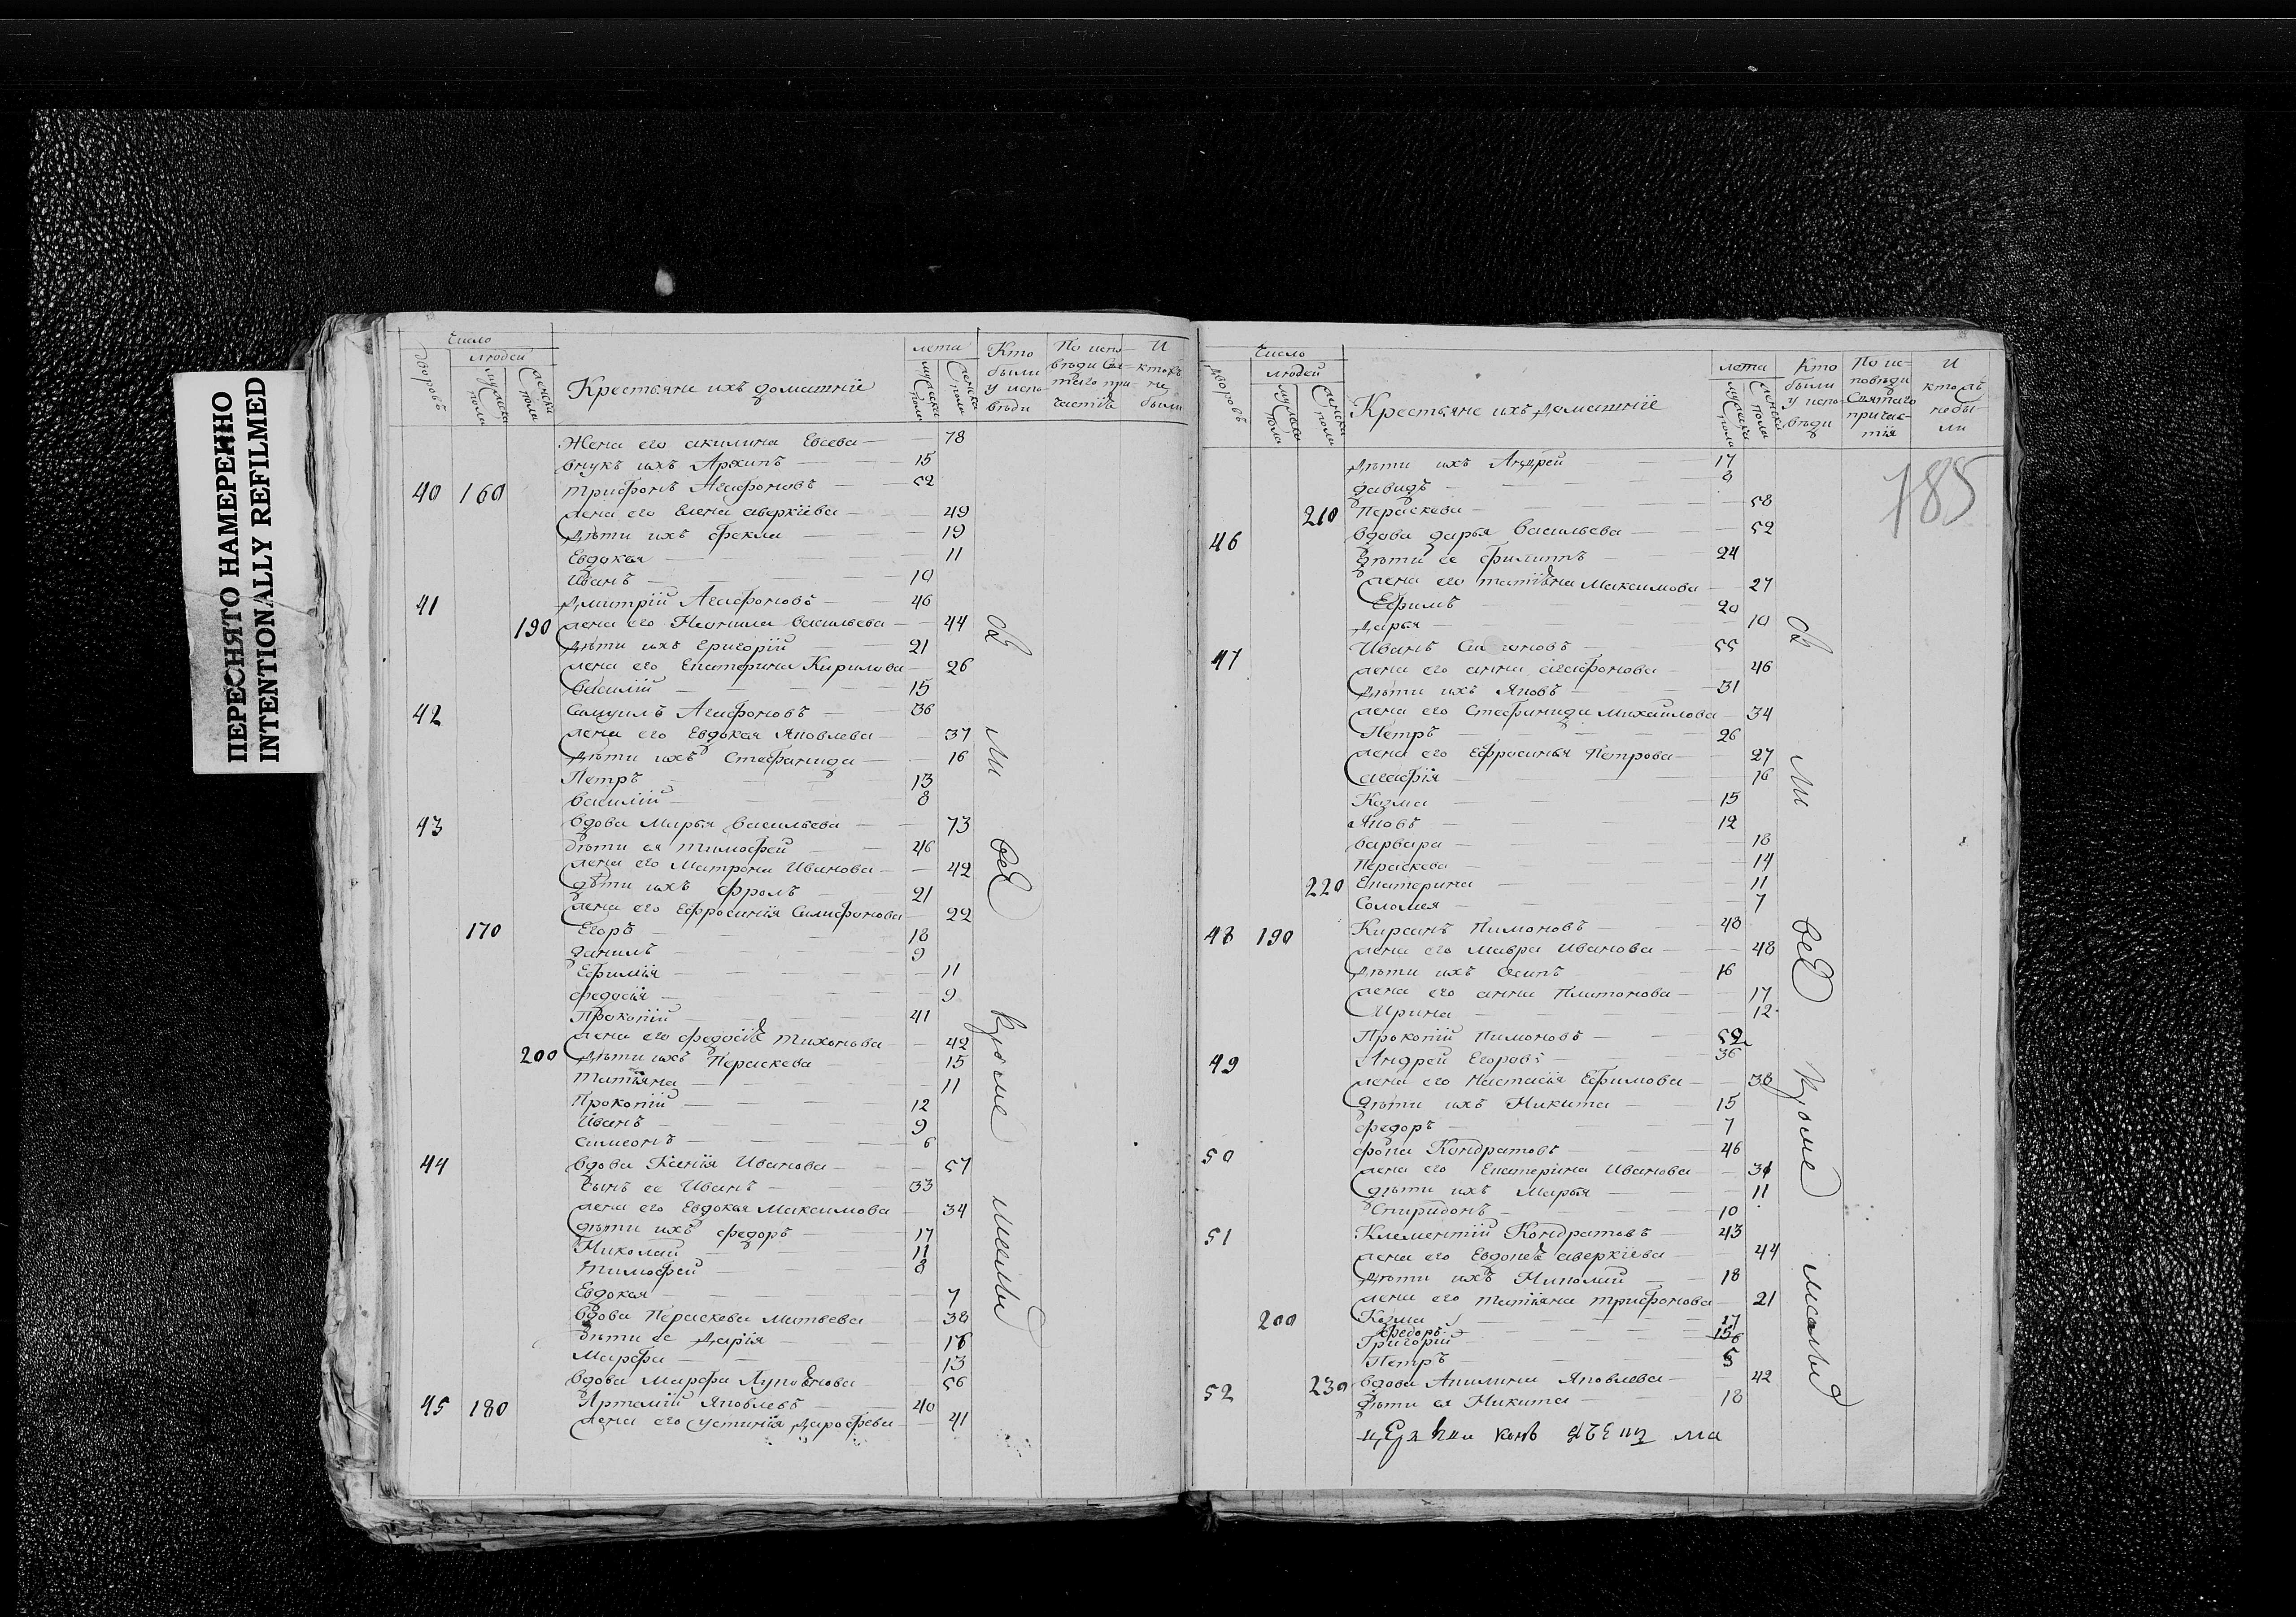 ПЕРЕСНЯТО НАМЕРЕННО
INTENTIONALLY REFILMED
Число
людей
дворовъ
мужеска пола
женска пола
Крестьяне ихъ домашнiе
лета
мужеска пола
женска пола
Кто были у испо-вѣди
По испо-вѣди Свя-таго при-частiя
И ктожъ не были
Жена его акилина Евсева — 78
внукъ ихъ Архипъ — 15
40 160 Трифонъ Агафоновъ — 52
жена его Елена аверкiева — 49
дѣти ихъ фекла — 19
Евдокея — 11
Иванъ — 10
41 Дмитрiй Агафоновъ — 46
190 жена его Неонила васильева — 44
дѣти ихъ Григорiй — 21
жена его Екатерина Кирилова — 26
василiй — 15
42 Самуилъ Агафоновъ — 36
жена его Евдокея Яковлева — 37
дѣти ихъ Стефанида — 16
Петръ — 13
василiй — 8
43 вдова Марья васильева — 73
дѣти ея тимофей — 46
жена его Матрона Иванова — 42
дѣти ихъ фролъ — 21
жена его Ефросинiя — 22
170 Егоръ — 18
данилъ — 9
Ефимiя — 11
федосiя — 9
Прокопiй — 41
жена его федосiя тихонова — 42
200 дѣти ихъ Пераскева — 15
татiяна — 11
Прокопiй — 12
Иванъ — 9
симеонъ — 6
44 вдова Ксенiя Иванова — 57
сынъ ее Иванъ — 33
жена его Евдокея Максимова — 34
дѣти ихъ федоръ — 17
Николай — 11
тимофей — 8
Евдокея — 7
вдова Пераскева Матвева — 38
дѣти ее дарiя — 16
Марфа — 13
вдова Марфа — 56
45 180 Артамiй Яковлевъ — 40
жена его устинiя дарофеева — 41
Оз ми вед кромѣ малыхъ
Число
людей
дворовъ
мужеска пола
женска пола
Крестьяне ихъ домашнiе
лета
мужеска пола
женска пола
Кто были у испо-вѣди
По ис-повѣди Святаго причас-тiя
И ктожъ небы-ли
785
дѣти ихъ Андрей — 17
давидъ —
210 Пераскева — 58
46 вдова дарья васильева — 52
дѣти ее филиппъ — 24
жена его татiяна Максимова — 27
Ефимъ — 20
дарья — 10
47 Иванъ — 55
жена его анна агафонова — 46
дѣти ихъ Яковъ — 31
жена его Стефанида михайлова — 34
Петръ — 26
жена его Ефросинья Петрова — 27
агафiя — 16
Козма — 15
Яковъ — 12
варвара — 18
Пераскева — 14
220 Екатерина — 11
Соломея — 7
48 190 Кирсанъ Пимоновъ — 48
жена его мавра Иванова — 48
дѣти ихъ Осипъ — 16
жена его анна Платонова — 17
Ирина — 12
Прокопiй Пимоновъ — 52
49 Андрей Егоровъ — 36
жена его Настасiя Ефимова — 38
дѣти ихъ Никита — 15
федоръ — 7
50 фока Кондратовъ — 46
жена его Екатерина Иванова — 31
дѣти ихъ Марья — 11
Спиридонъ — 10
51 Клементiй Кондратовъ — 43
жена его Евдокея аверкiева — 44
дѣти ихъ Николай — 18
жена его татiяна трифонова — 21
200 Козма — 17
федоръ — 15
Григорiй — 6
Петръ — 5
52 230 вдова Акилина Яковлева — 42
дѣти ея Никита — 18
Оз ми вед кромѣ малыхъ